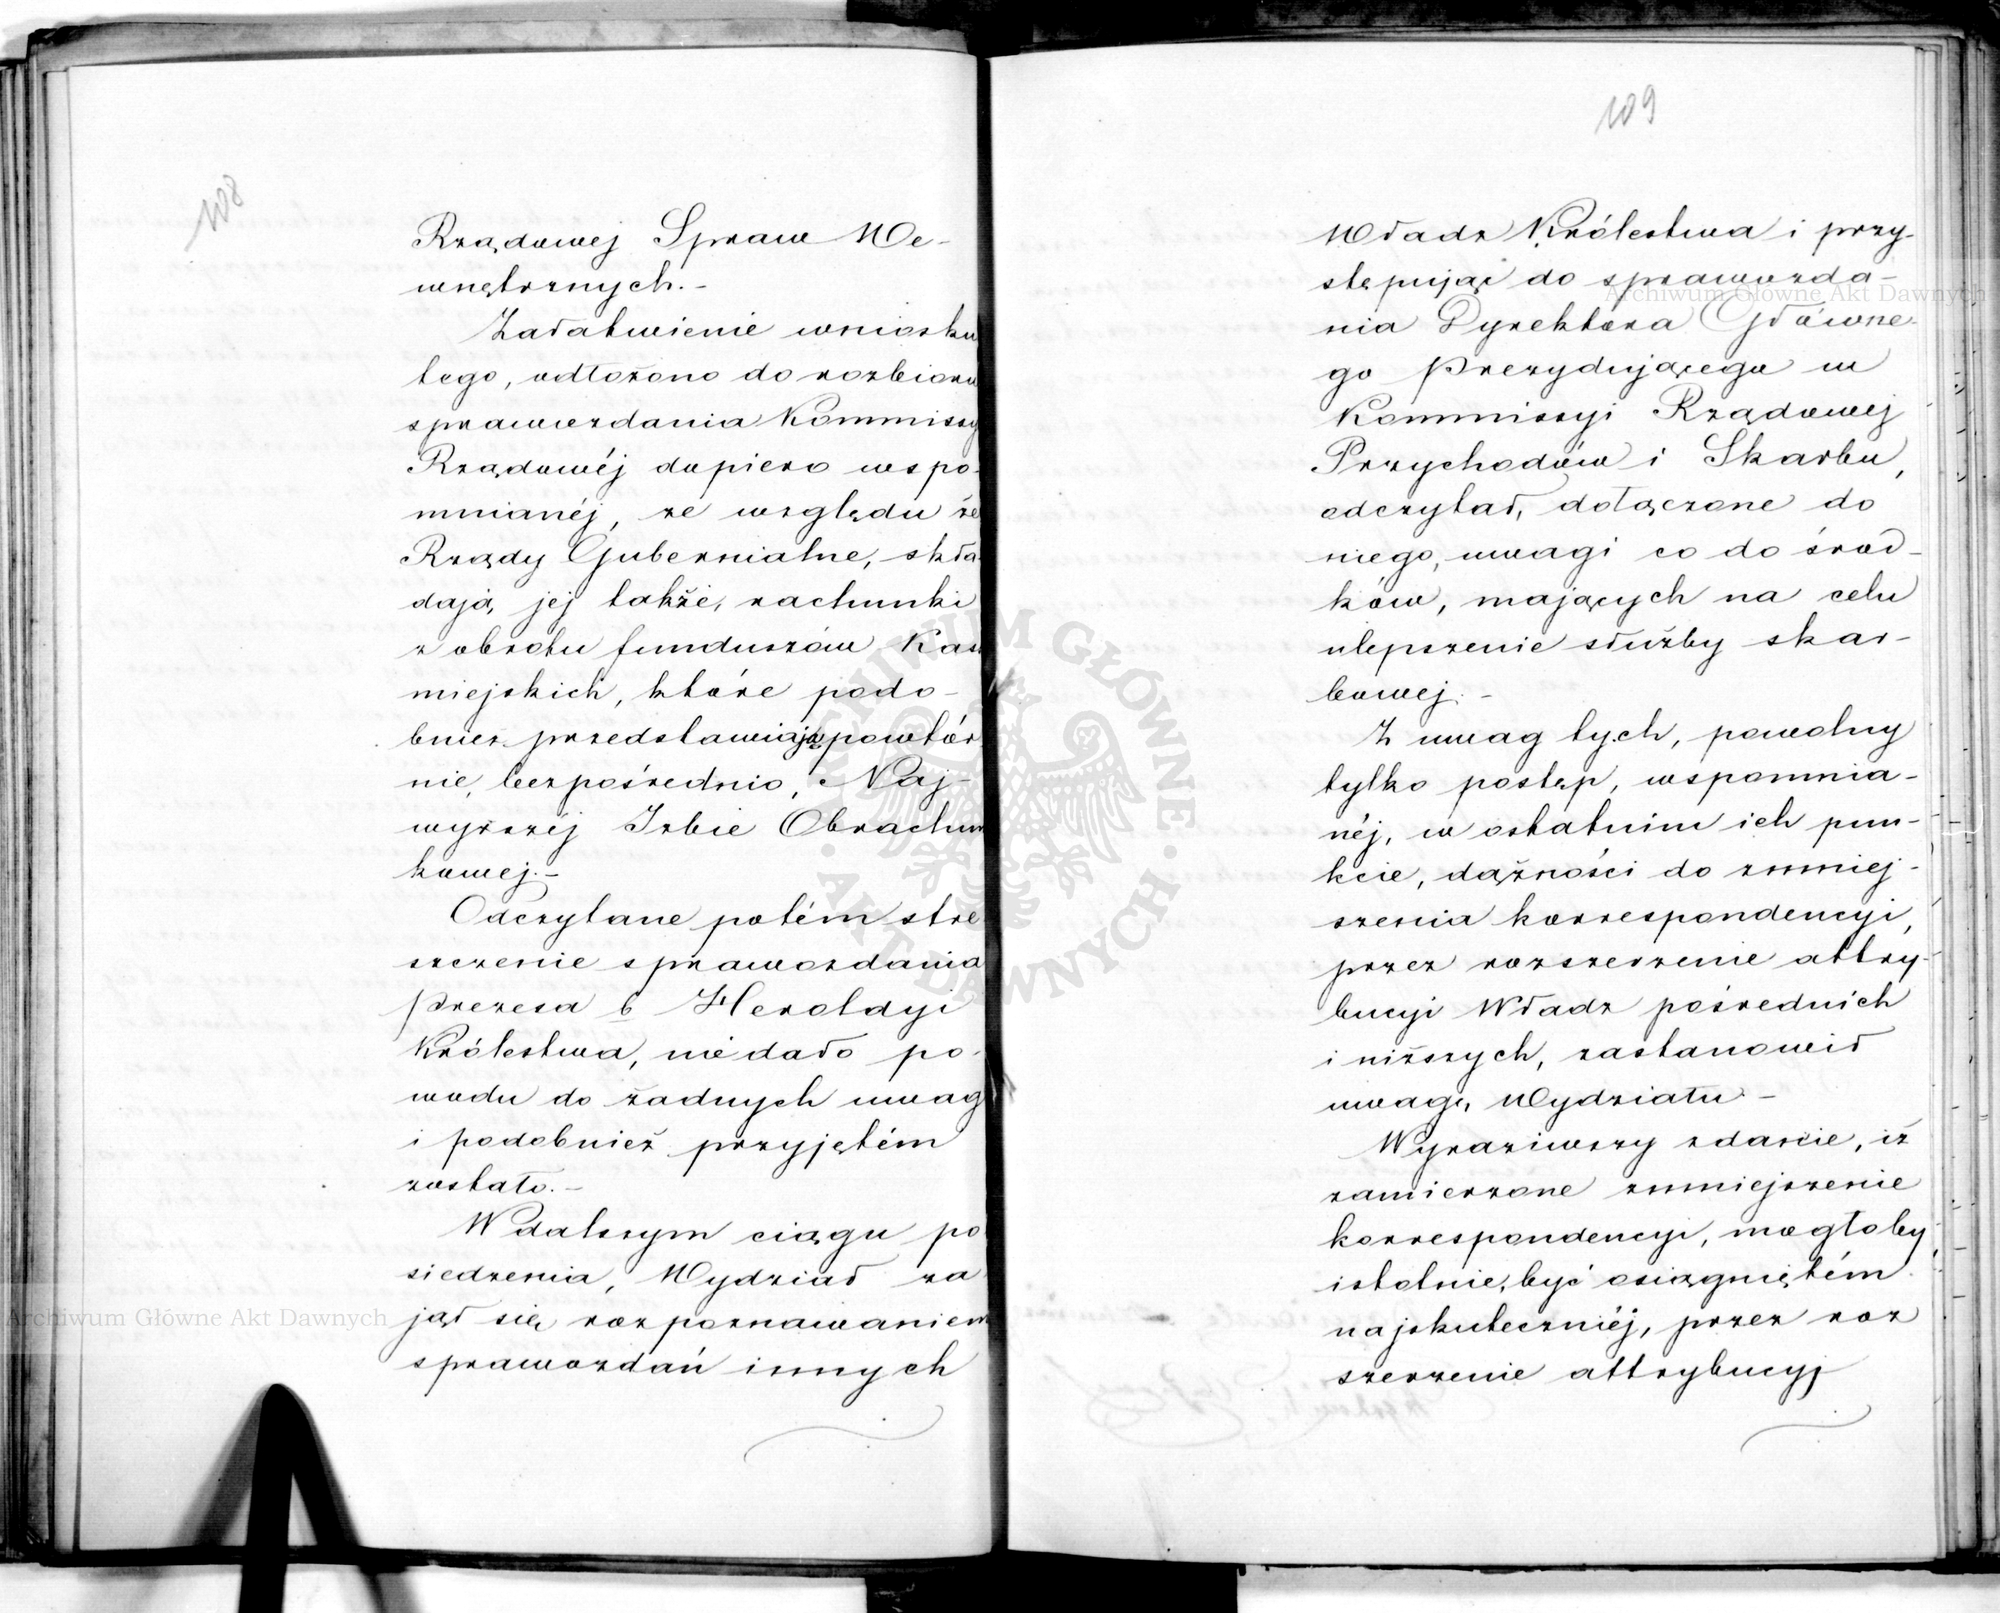 108
Rządowej Spraw We-
wnętrznych. -
Załatwienie wniosku
tego, odłożono do rozbioru
sprawozdania Kommissy
Rządowéj dopiero wspo-
mnianéj, ze względu że
Rządy Gubernialne, skła-
dają, jej także, rachunki
z obrotu funduszów Kass
miejskich, które podo-
bnież przedstawiają powtór-
nie, bezpośrednio, Naj-
wyższéj Izbie Obrachun
kowej. -
Odczytane potém stre
szczenie sprawozdania
Prezesa b Heroldyi
Królestwa, nie dało po-
wodu do żadnych uwag
i podobnież przyjętém
zostało. -
W dalszym ciągu po
siedzenia, Wydział za
jął się rozpoznawaniem
sprawozdań innych
109
Władz Królestwa i przy-
stępując do sprawozda-
nia Dyrektora Główne-
go Prezydującego w
Kommissyi Rządowej
Przychodów i Skarbu,
odczytał, dołączone do
niego, uwagi co do środ-
ków, mających na celu
ulepszenie służby skar-
bowej. -
Z uwag tych, powolny
tylko postęp, wspomnia-
néj, w ostatnim ich pun-
kcie, dążności do zmniej-
szenia korrespondencyi,
przez rozszerzenie attry-
bucyi Władz pośrednich
i niższych, zastanowił
uwagę, Wydziału -
Wyraziwszy zdanie, iż
zamierzone zmniejszenie
korrespondencyi, mogłoby,
istotnie, być osiągniętém
najskuteczniéj, przez roz
szerzenie attrybucyj
Archiwum Główne Akt Dawnych
Archiwum Główne Akt Dawnych
ARCHIWUM GŁÓWNE · AKT DAWNYCH ·